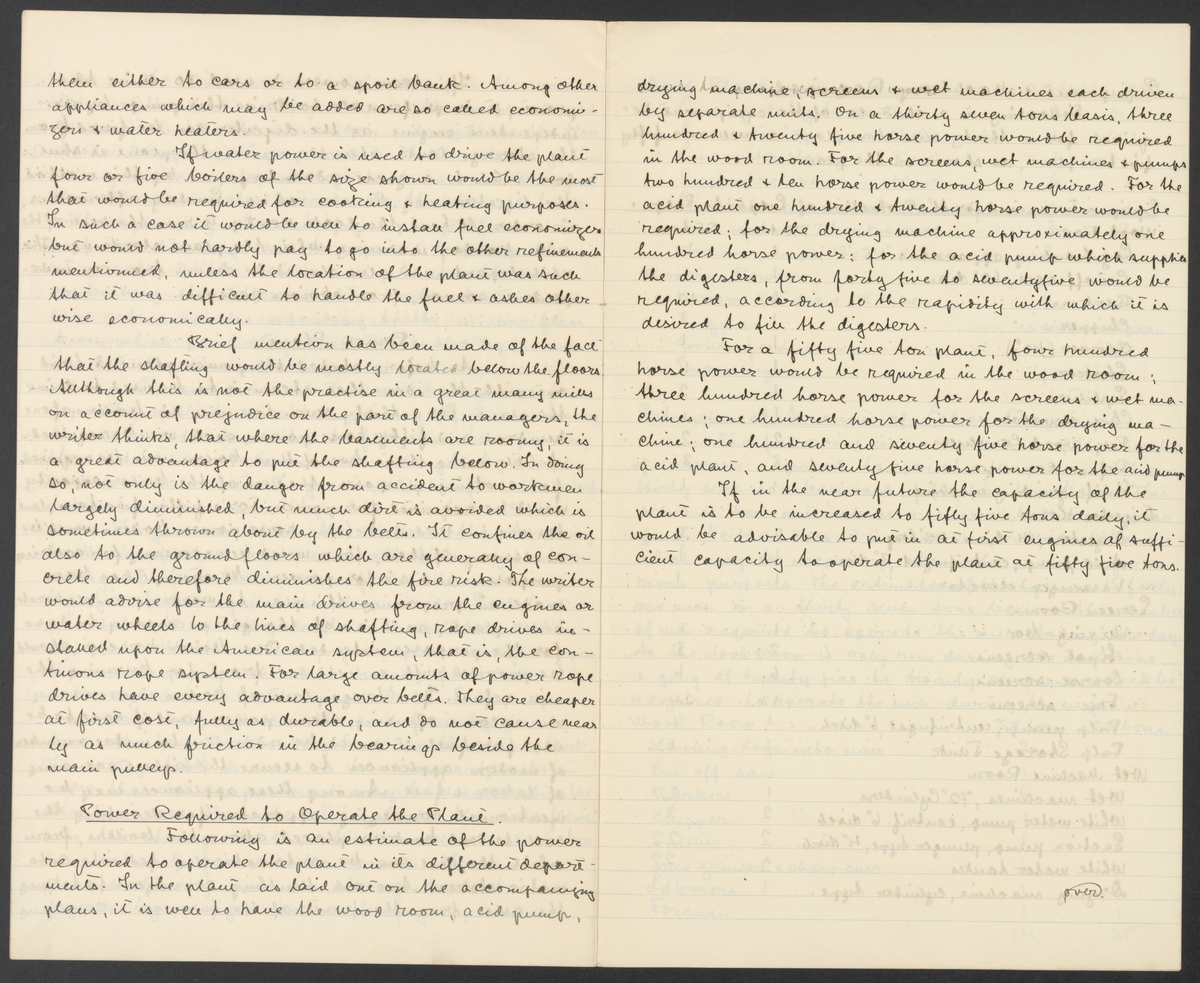 them either to cars or to a spoil bank. Among other
appliances which may be added are so called economi-
zers & water heaters.
If water power is used to drive the plant
four or five boilers of the size shown would be the most
that would be required for cooking & heating purposes.
In such a case it would be well to install fuel economizers
but would not hardly pay to go into the other refinements
mentioned, unless the location of the plant was such
that it was difficult to handle the fuel & ashes other
wise economically.
Brief mention has been made of the fact
that the shafting would be mostly located below the floors
Although this is not the practise in a great many mills
on account of prejudice on the part of the managers, the
writer thinks, that where the basements are roomy, it is
a great advantage to put the shafting below. In doing
so, not only is the danger from accident to workmen
largely diminished, but much dirt is avoided which is
sometimes thrown about by the belts. It confines the oil
also to the ground floors which are generally of con-
crete and therefore diminishes the fire risk. The writer
would advise for the main drives from the engines or
water wheels to the lines of shafting, rope drives in-
stalled upon the American system, that is, the con-
tinous rope system. For large amounts of power rope
drives have every advantage over belts. They are cheaper
at first cost, fully as durable, and do not cause near
ly as much friction in the bearings beside the
main pulleys.
Power Required to Operate the Plant.
Following is an estimate of the power
required to operate the plant in its different depart-
ments. In the plant as laid out on the accompanying
plans, it is well to have the wood room, acid pump,
drying machine, screens & wet machines each driven
by separate units. On a thirty seven tons basis, three
hundred & twenty five horse power would be required
in the wood room. For the screens, wet machines & pumps
two hundred & ten horse power would be required. For the
acid plant one hundred & twenty horse power would be
required; for the drying machine approximately one
hundred horse power; for the acid pump which supplies
the digesters, from forty five to seventyfive would be
required, according to the rapidity with which it is
desired to fill the digesters.
For a fifty five ton plant, four hundred
horse power would be required in the wood room;
three hundred horse power for the screens & wet ma-
chines; one hundred horse power for the drying ma-
chine; one hundred and seventy five horse power for the
acid plant, and seventy five horse power for the acid pump
If in the near future the capacity of the
plant is to be increased to fifty five tons daily, it
would be advisable to put in at first engines of suffi-
cient capacity to operate the plant at fifty five tons.
over.